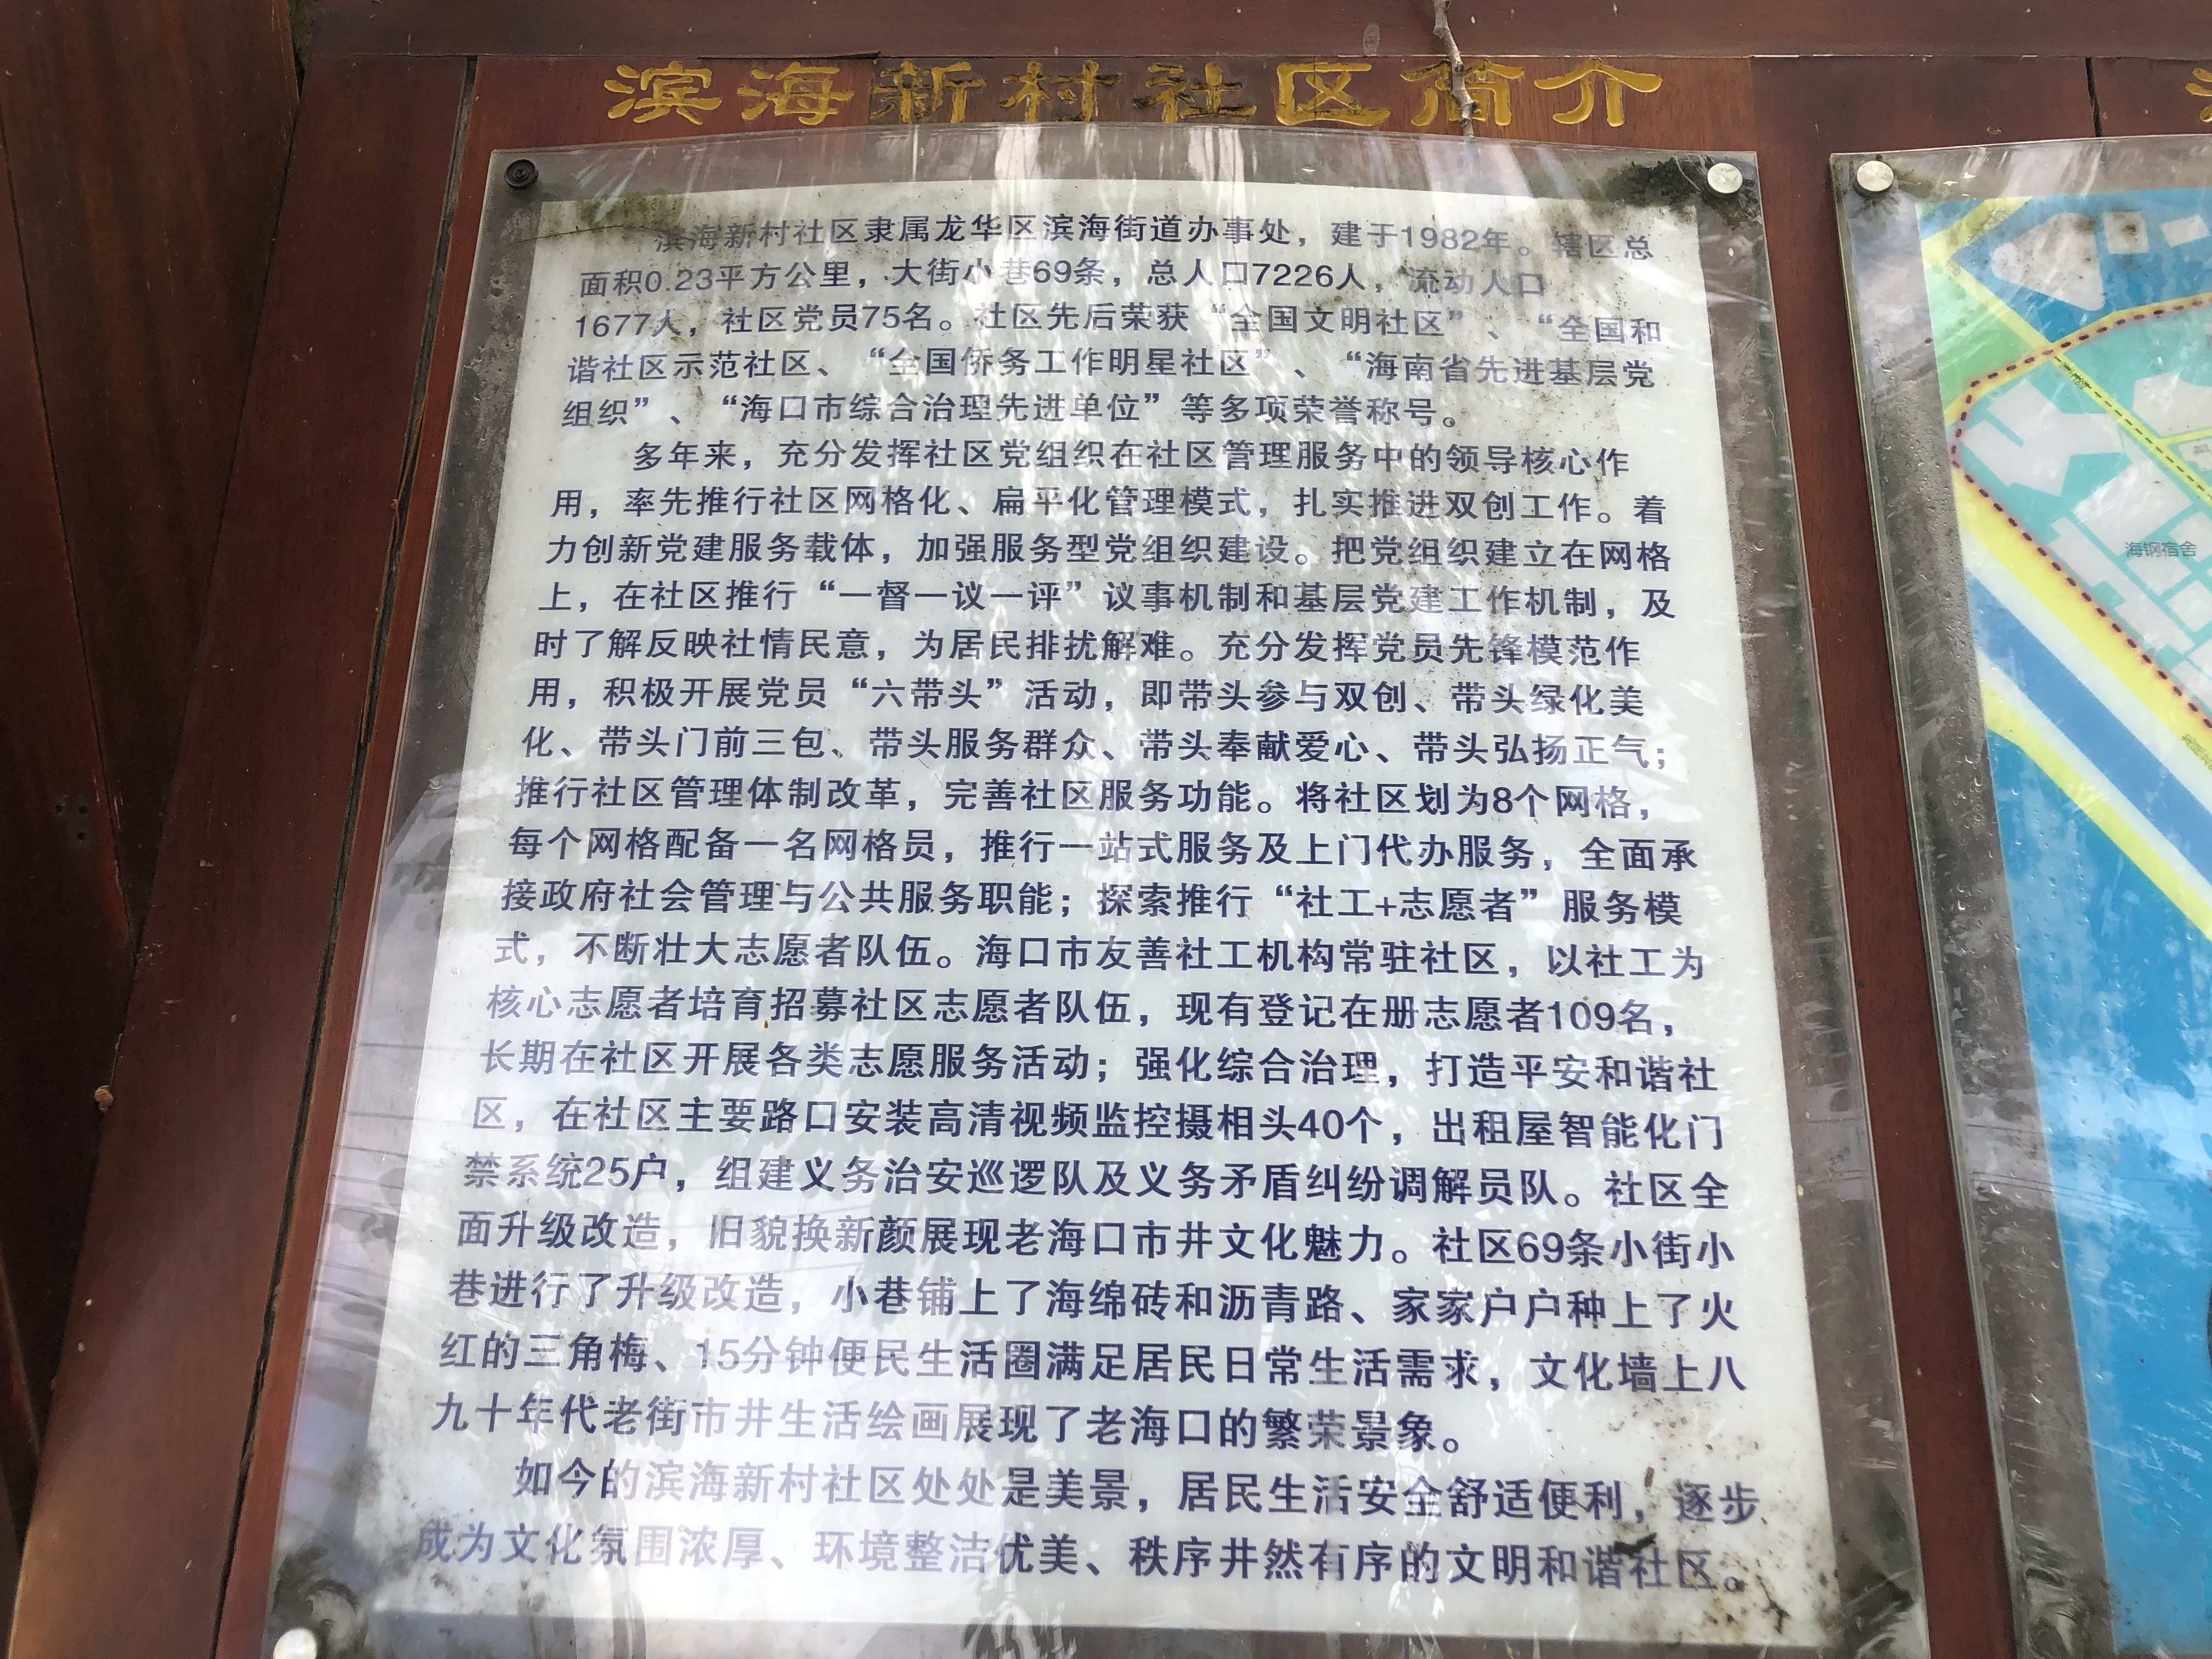 滨海新村社区简介
滨海新村社区隶属龙华区滨海街道办事处，建于1982年。辖区总
面积0.23平方公里，大街小巷69条，总人口7226人，流动人口
1677人，社区党员75名。社区先后荣获“全国文明社区”、“全国和
谐社区示范社区、“全国侨务工作明星社区”、“海南省先进基层党
组织”、“海口市综合治理先进单位”等多项荣誉称号。
多年来，充分发挥社区党组织在社区管理服务中的领导核心作
用，率先推行社区网格化、扁平化管理模式，扎实推进双创工作。着
力创新党建服务载体，加强服务型党组织建设。把党组织建立在网格
上，在社区推行“一督一议一评”议事机制和基层党建工作机制，及
时了解反映社情民意，为居民排扰解难。充分发挥党员先锋模范作
用，积极开展党员“六带头”活动，即带头参与双创、带头绿化美
化、带头门前三包、带头服务群众、带头奉献爱心、带头弘扬正气；
推行社区管理体制改革，完善社区服务功能。将社区划为8个网格，
每个网格配备一名网格员，推行一站式服务及上门代办服务，全面承
接政府社会管理与公共服务职能；探索推行“社工+志愿者”服务模
式，不断壮大志愿者队伍。海口市友善社工机构常驻社区，以社工为
核心志愿者培育招募社区志愿者队伍，现有登记在册志愿者109名，
长期在社区开展各类志愿服务活动；强化综合治理，打造平安和谐社
区，在社区主要路口安装高清视频监控摄相头40个，出租屋智能化门
禁系统25户，组建义务治安巡逻队及义务矛盾纠纷调解员队。社区全
面升级改造，旧貌换新颜展现老海口市井文化魅力。社区69条小街小
巷进行了升级改造，小巷铺上了海绵砖和沥青路、家家户户种上了火
红的三角梅、15分钟便民生活圈满足居民日常生活需求，文化墙上八
九十年代老街市井生活绘画展现了老海口的繁荣景象。
如今的滨海新村社区处处是美景，居民生活安全舒适便利，逐步
成为文化氛围浓厚、环境整洁优美、秩序井然有序的文明和谐社区。
海钢宿舍